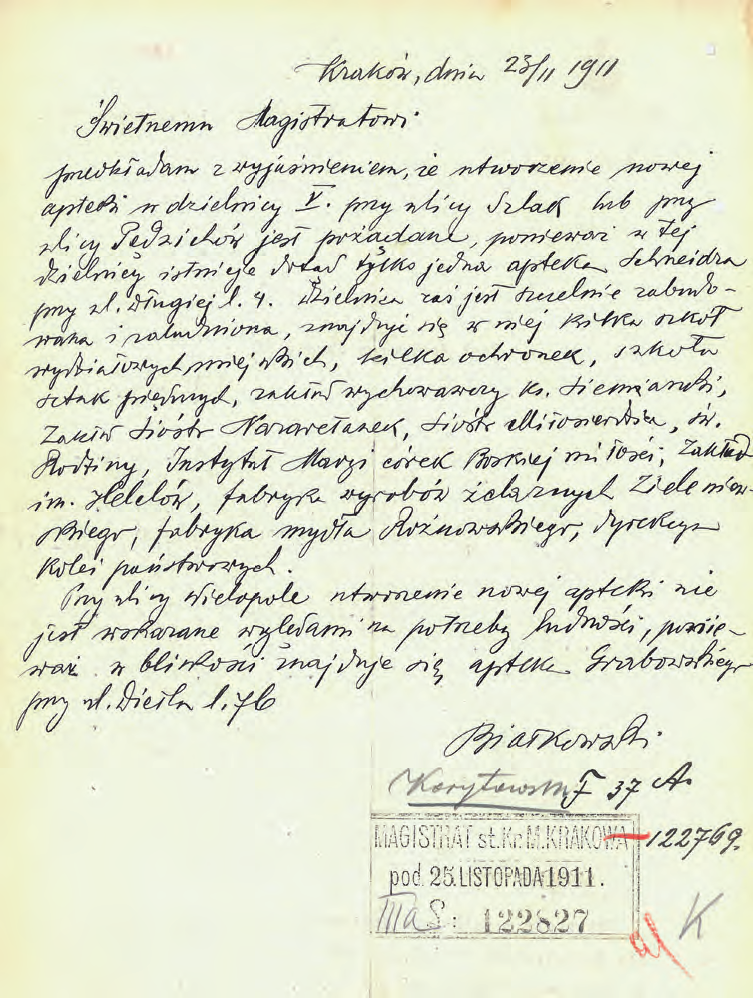 Kraków, dnia 23/11 1911
Świetnemu Magistratowi
przedkładam z wyjaśnieniem, że utworzenie nowej
apteki w dzielnicy V. przy ulicy Szlak lub przy
ulicy Pędzichów jest pożądane, ponieważ w tej
dzielnicy istnieje dotąd tylko jedna apteka Schneidra
przy ul. Długiej l. 4. Dzielnica zaś jest szczelnie zabudo-
wana i zaludniona, znajduje się w niej kilka szkół
wydziałowych miejskich, kilka ochronek, szkoła
sztuk pięknych, zakład wychowawczy ks. Siemaszki,
Zakład Sióstr Nazaretanek, Sióstr Miłosierdzia, św.
Rodziny, Instytut Maryi córek Boskiej miłości, Zakład
im. Helclów, fabryka wyrobów żelaznych Zieleniew-
skiego, fabryka mydła Rożnowskiego, dyrekcya
kolei państwowych.
Przy ulicy Wielopole utworzenie nowej apteki nie
jest wskazane względami na potrzeby ludności, ponie-
waż w bliskości znajduje się apteka Grabowskiego
przy ul. Dietla l. 76
Białkowski
Korytowski F 37 A.
122769.
MAGISTRAT st. Kr. M. KRAKOWA
pod 25. LISTOPADA 1911.
IIIa S: 122827
K